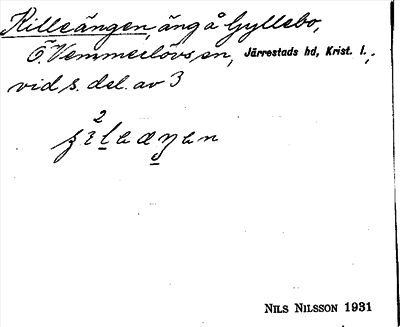 Killeängen, äng å Gyllebo,
Ö. Vemmerlövs sn, Järrestads hd, Krist. l.;
vid s. del. av 3
NILS NILSSON 1931